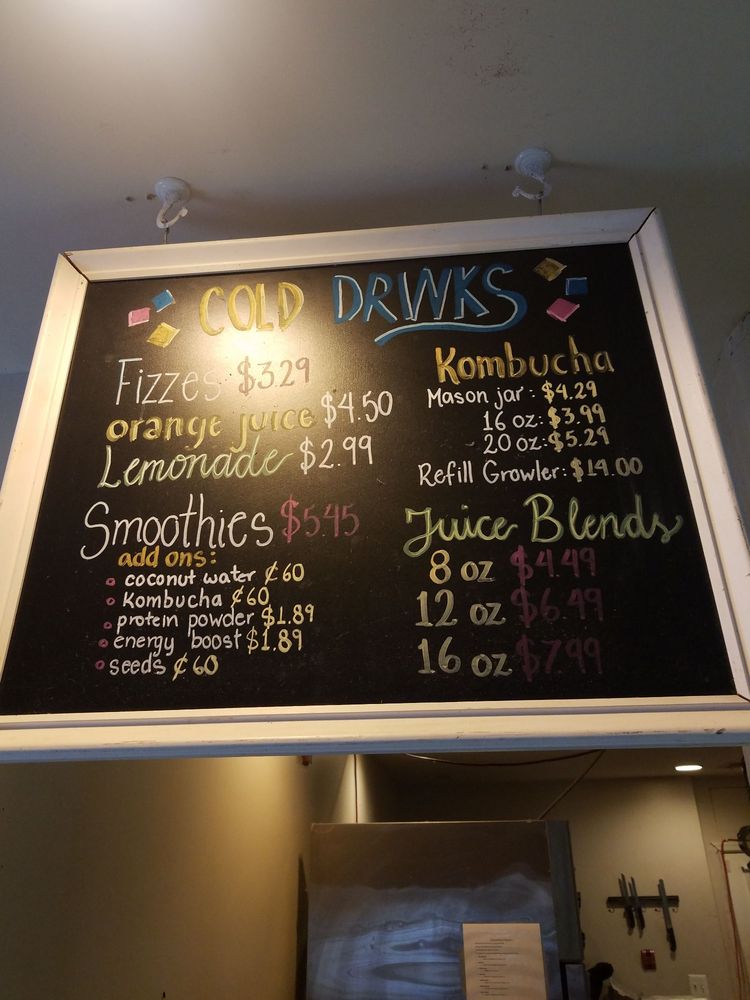 COLD DRINKS
Fizzes $3.29
orange juice $4.50
Lemonade $2.99
Smoothies $5.45
add ons:
coconut water ¢60
Kombucha ¢60
protein powder $1.89
energy boost $1.89
seeds ¢60
Kombucha
Mason jar: $4.29
16 oz: $3.99
20 oz: $5.29
Refill Growler: $14.00
Juice Blends
8 oz $4.49
12 oz $6.49
16 oz $7.99